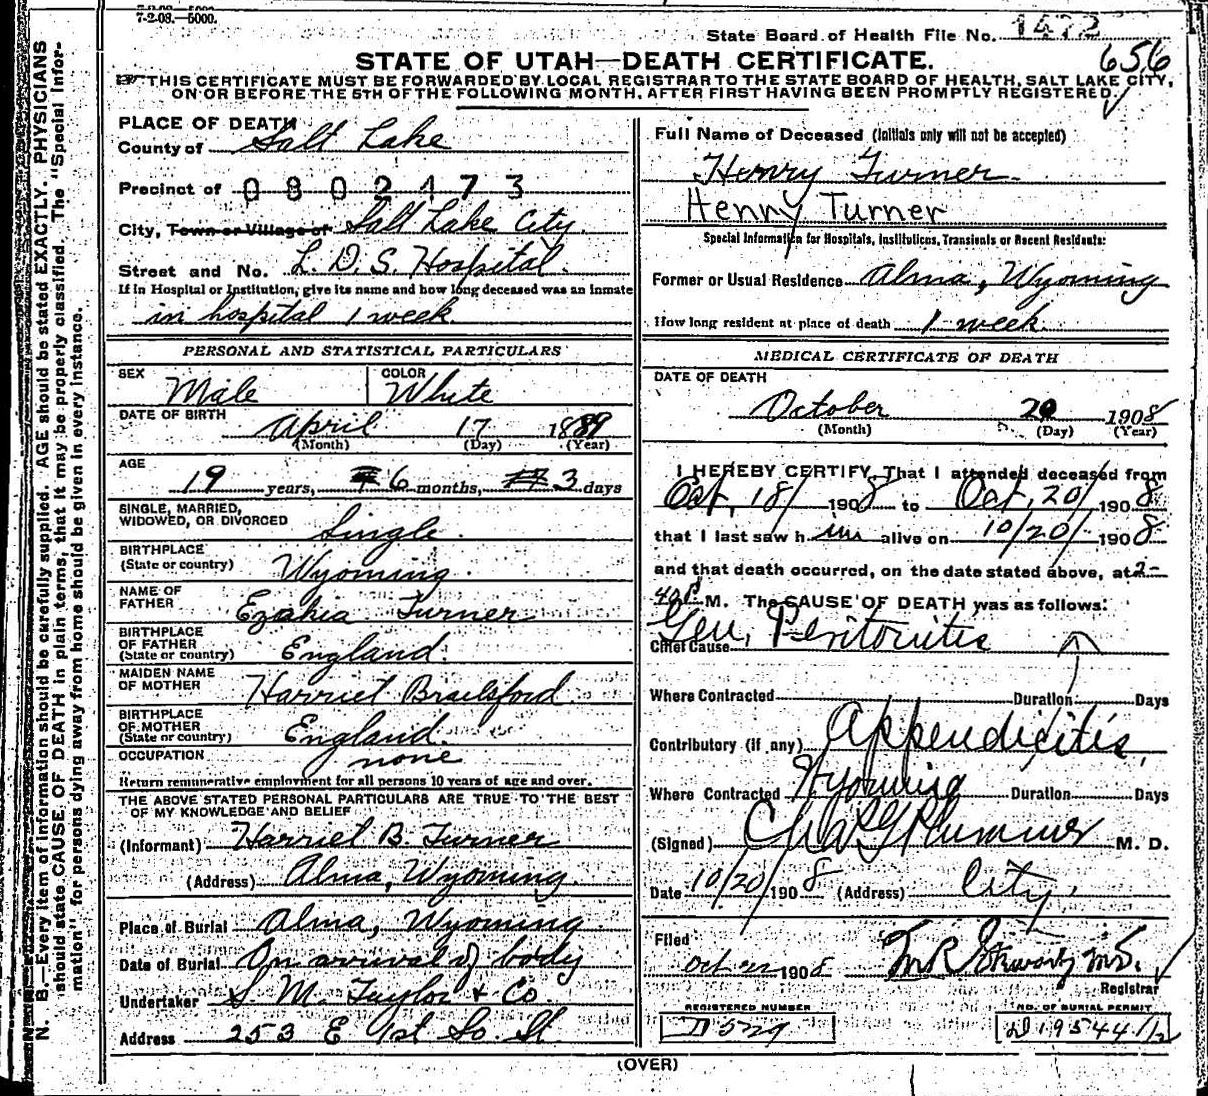 7-2-08.—5000.
State Board of Health File No. 1472
656
STATE OF UTAH—DEATH CERTIFICATE.
THIS CERTIFICATE MUST BE FORWARDED BY LOCAL REGISTRAR TO THE STATE BOARD OF HEALTH, SALT LAKE CITY,
ON OR BEFORE THE 5TH OF THE FOLLOWING MONTH, AFTER FIRST HAVING BEEN PROMPTLY REGISTERED.
N. B.—Every item of information should be carefully supplied. AGE should be stated EXACTLY. PHYSICIANS
should state CAUSE OF DEATH in plain terms, that it may be properly classified. The "Special Infor-
mation" for persons dying away from home should be given in every instance.
PLACE OF DEATH
County of Salt Lake
Precinct of 0802473
City, Town or Village of Salt Lake City.
Street and No. L. D. S. Hospital.
If in Hospital or Institution, give its name and how long deceased was an inmate
in hospital 1 week.
PERSONAL AND STATISTICAL PARTICULARS
SEX Male
COLOR White
DATE OF BIRTH
April 17 1889
(Month) (Day) (Year)
AGE
19 years, 6 months, 3 days
SINGLE, MARRIED,
WIDOWED, OR DIVORCED Single.
BIRTHPLACE
(State or country) Wyoming.
NAME OF
FATHER Ezakia Turner
BIRTHPLACE
OF FATHER
(State or country) England.
MAIDEN NAME
OF MOTHER Harriet Brailsford
BIRTHPLACE
OF MOTHER
(State or country) England.
OCCUPATION none
Return remunerative employment for all persons 10 years of age and over.
THE ABOVE STATED PERSONAL PARTICULARS ARE TRUE TO THE BEST
OF MY KNOWLEDGE AND BELIEF
(Informant) Harriet B. Turner
(Address) Alma, Wyoming.
Place of Burial Alma, Wyoming.
Date of Burial On arrival of body
Undertaker S. M. Taylor & Co.
Address 253 E 1st So. St.
Full Name of Deceased (Initials only will not be accepted)
Henry Turner.
Henry Turner
Special Information for Hospitals, Institutions, Transients or Recent Residents:
Former or Usual Residence Alma, Wyoming
How long resident at place of death 1 week.
MEDICAL CERTIFICATE OF DEATH
DATE OF DEATH
October 20 1908
(Month) (Day) (Year)
I HEREBY CERTIFY, That I attended deceased from
Oct, 18/ 1908 to Oct, 20/ 1908
that I last saw h im alive on 10/20/ 1908
and that death occurred, on the date stated above, at 2-
40 P M. The CAUSE OF DEATH was as follows:
Chief Cause Gen, Peritonitis
Where Contracted Duration Days
Contributory (if any) Appendicitis,
Where Contracted Wyoming Duration Days
(Signed) Chas G Plummer M. D.
Date 10/20/1908 (Address) City,
Filed
Oct 22 1908
Registrar
REGISTERED NUMBER
D529
NO. OF BURIAL PERMIT
D 19544 1/2
(OVER)